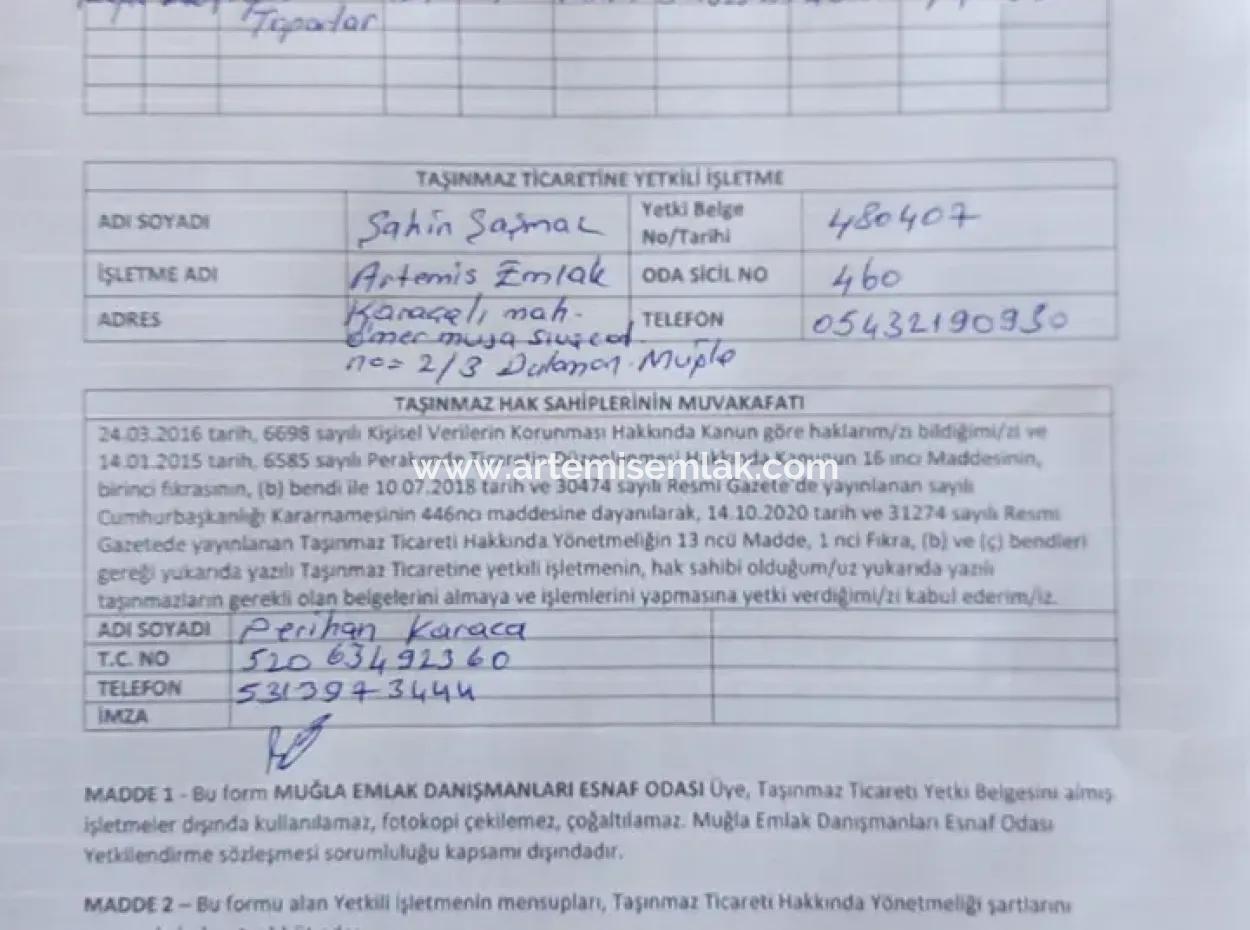 Toparlar
TAŞINMAZ TİCARETİNE YETKİLİ İŞLETME
ADI SOYADI Şahin Saşmaz Yetki Belge No/Tarihi 480407
İŞLETME ADI Artemis Emlak ODA SİCİL NO 460
ADRES Karaçalı mah. TELEFON 05432190930
ömer musa
no= 2/3 Dalaman. Muğla
TAŞINMAZ HAK SAHİPLERİNİN MUVAKAFATI
24.03.2016 tarih, 6698 sayılı Kişisel Verilerin Korunması Hakkında Kanun göre haklarım/zı bildiğimi/zi ve
14.01.2015 tarih, 6585 sayılı Perakende Ticaretin Düzenlenmesi Hakkında Kanunun 16 ıncı Maddesinin,
www.artemisemlak.com
birinci fıkrasının, (b) bendi ile 10.07.2018 tarih ve 30474 sayılı Resmi Gazete'de yayınlanan sayılı
Cumhurbaşkanlığı Kararnamesinin 446ncı maddesine dayanılarak, 14.10.2020 tarih ve 31274 sayılı Resmi
Gazetede yayınlanan Taşınmaz Ticareti Hakkında Yönetmeliğin 13 ncü Madde, 1 nci Fıkra, (b) ve (ç) bendleri
gereği yukarıda yazılı Taşınmaz Ticaretine yetkili işletmenin, hak sahibi olduğum/uz yukarıda yazılı
taşınmazların gerekli olan belgelerini almaya ve işlemlerini yapmasına yetki verdiğimi/zi kabul ederim/iz.
ADI SOYADI Perihan Karaca
T.C. NO 52063492360
TELEFON 5313973444
İMZA
MADDE 1 - Bu form MUĞLA EMLAK DANIŞMANLARI ESNAF ODASI Üye, Taşınmaz Ticareti Yetki Belgesini almış
işletmeler dışında kullanılamaz, fotokopi çekilemez, çoğaltılamaz. Muğla Emlak Danışmanları Esnaf Odası
Yetkilendirme sözleşmesi sorumluluğu kapsamı dışındadır.
MADDE 2 – Bu formu alan Yetkili işletmenin mensupları, Taşınmaz Ticareti Hakkında Yönetmeliği şartlarını